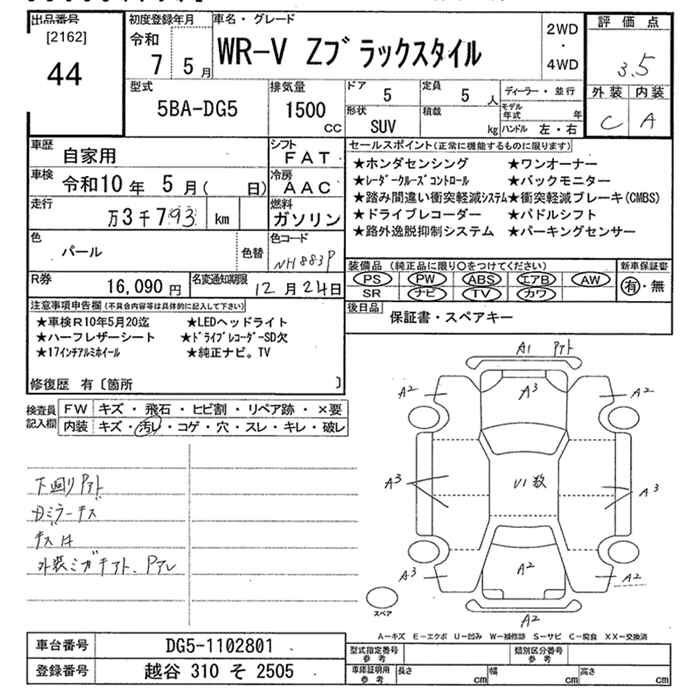 出品番号
[2162]
44
初度登録年月
令和
7 5 月
車名・グレード
WR-V Zブラックスタイル
2WD
・
4WD
評価点
3.5
外装 内装
C A
型式
5BA-DG5
排気量
1500
CC
ドア
5
定員
5 人
形状
SUV
積載
kg
ディーラー・並行
モデル年式 年
ハンドル 左・右
車歴
自家用
シフト
FAT
車検
令和10 年 5 月( 日)
冷房
AAC
走行
万3千793 km
燃料
ガソリン
色
パール
色替
色コード
NH883P
R券
16,090 円
名変通知期限
12 月 24 日
セールスポイント(正常に機能するものに限ります)
★ホンダセンシング ★ワンオーナー
★レーダークルーズコントロール ★バックモニター
★踏み間違い衝突軽減システム★衝突軽減ブレーキ(CMBS)
★ドライブレコーダー ★パドルシフト
★路外逸脱抑制システム ★パーキングセンサー
装備品 (純正品に限り○をつけてください)
PS PW ABS エアB AW
SR ナビ TV カワ
新車保証書
有・無
後日品
保証書・スペアキー
注意事項申告欄(不具合内容等は具体的に記入して下さい)
★車検R10年5月20迄 ★LEDヘッドライト
★ハーフレザーシート ★ドライブレコーダーSD欠
★17インチアルミホイール ★純正ナビ。TV
修復歴 有〔箇所 〕
検査員記入欄
FW キズ・飛石・ヒビ割・リペア跡・×要
内装 キズ・汚レ・コゲ・穴・スレ・キレ・破レ
下廻りPアト
キズ
外装ミガキアト、Pアレ
A1 Pアト
A2 A3 A2
A3 U1数 A3
A3 A2 A2
A2
スペア
A−キズ E−エクボ U−凹み W−補修跡 S−サビ C−腐食 XX−交換済
車台番号
DG5-1102801
登録番号
越谷 310 そ 2505
型式指定番号
参考
類別区分番号
参考
車庫証明用
参考
長さ cm 幅 cm 高さ cm